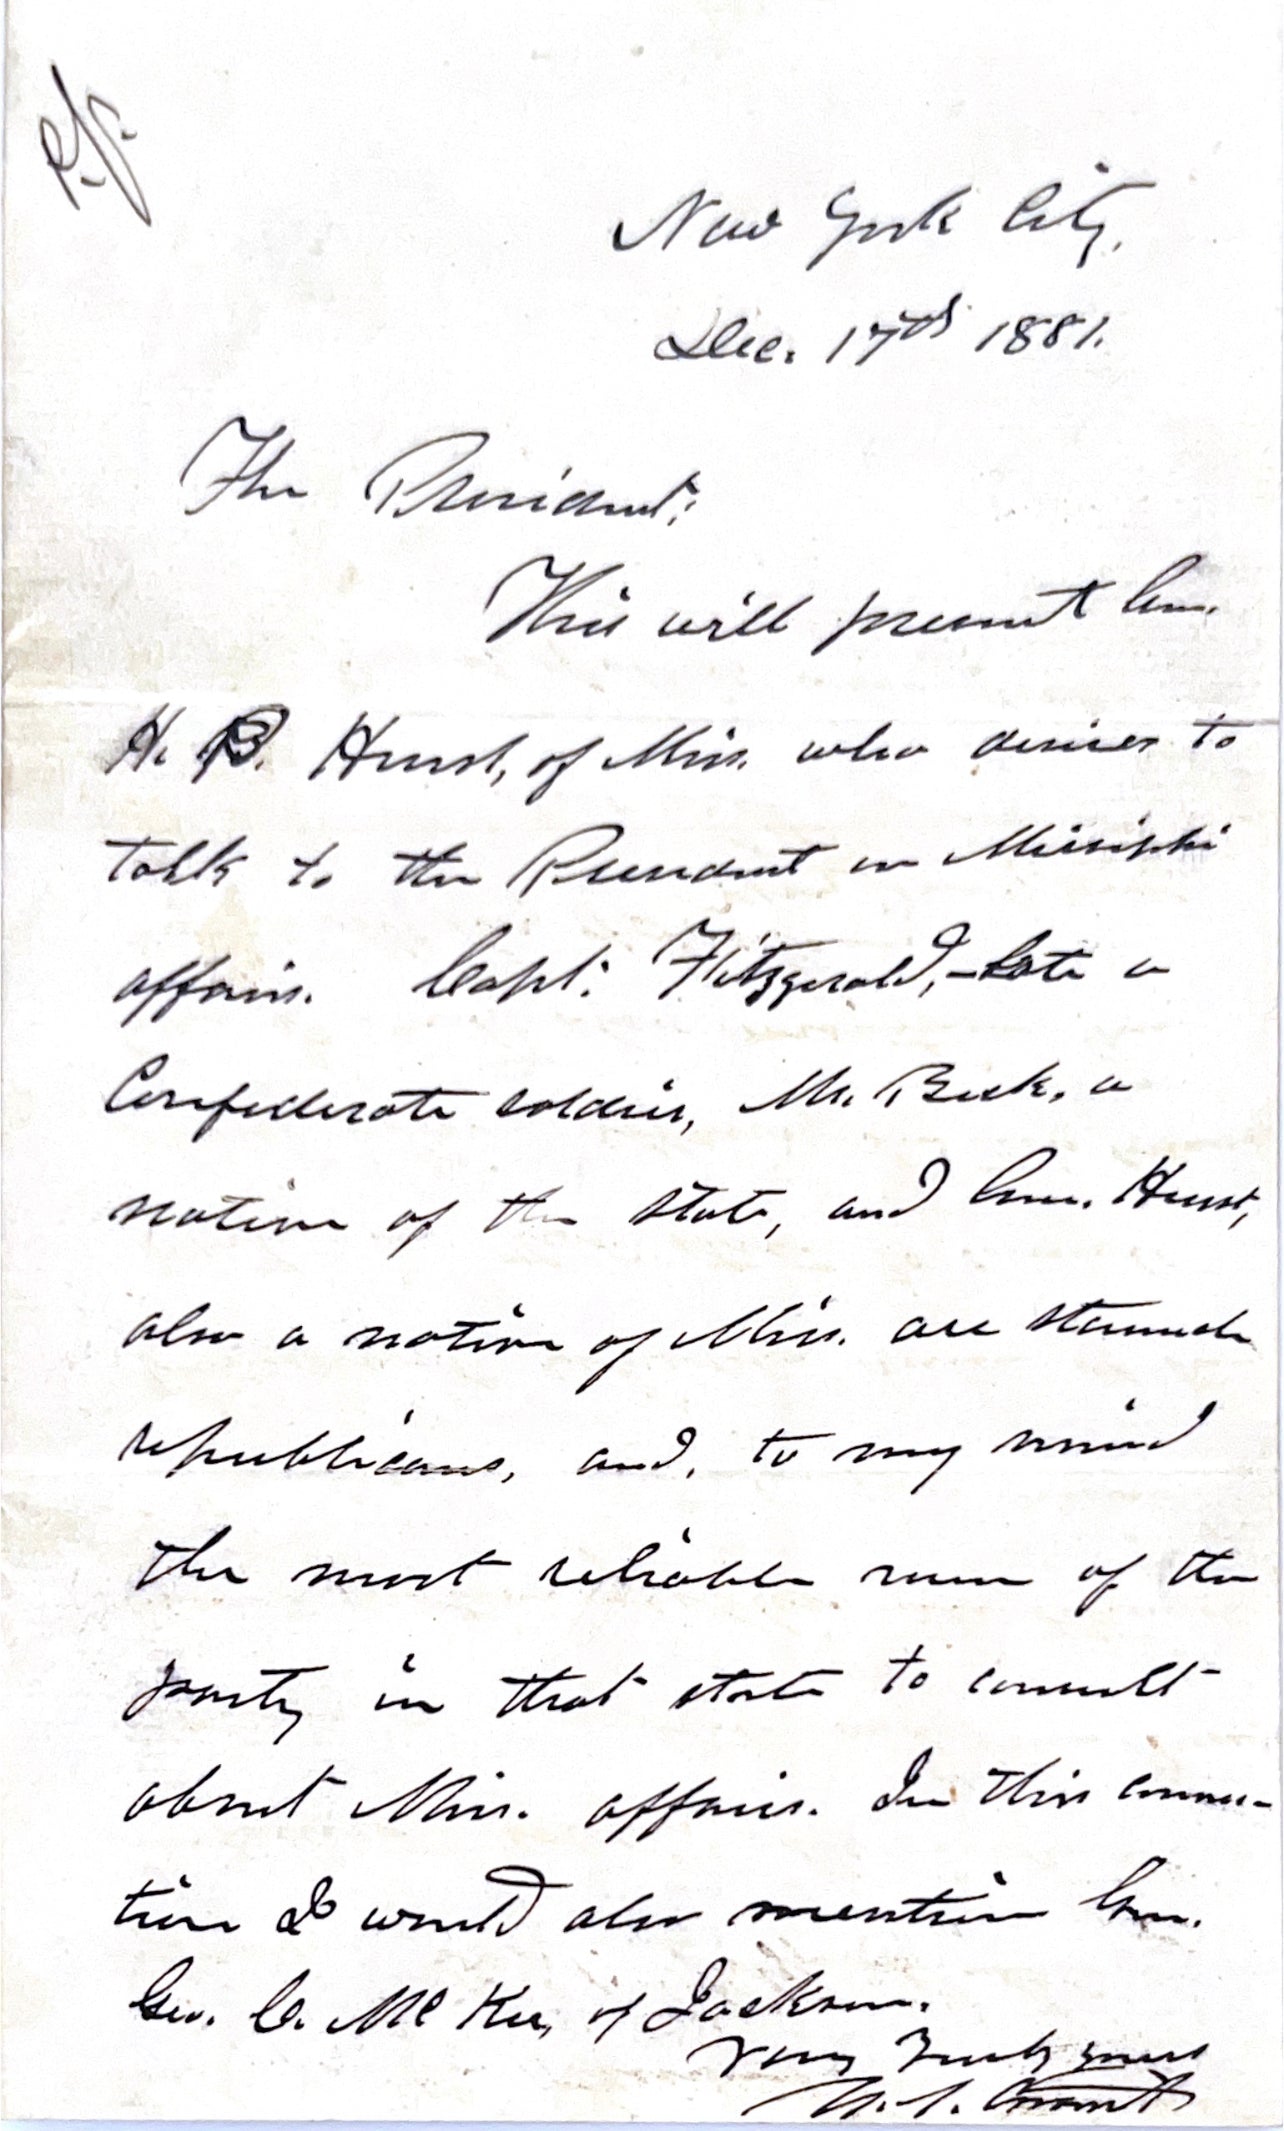 New York City,
Dec. 17th 1881.
The President:
This will present Gen.
H. B. Hurst, of Miss. who desires to
talk to the President on Missisipi
affairs. Capt. Fitzgerald, late a
Confederate soldier, Mr. Beck, a
native of the state, and Gen. Hurst,
also a native of Miss. are staunch
republicans, and, to my mind
the most reliable men of the
party in that state to consult
about Miss. affairs. In this connec-
tion I would also mention Gen.
Geo. C. McKee, of Jackson.
Very Truly yours
U. S. Grant